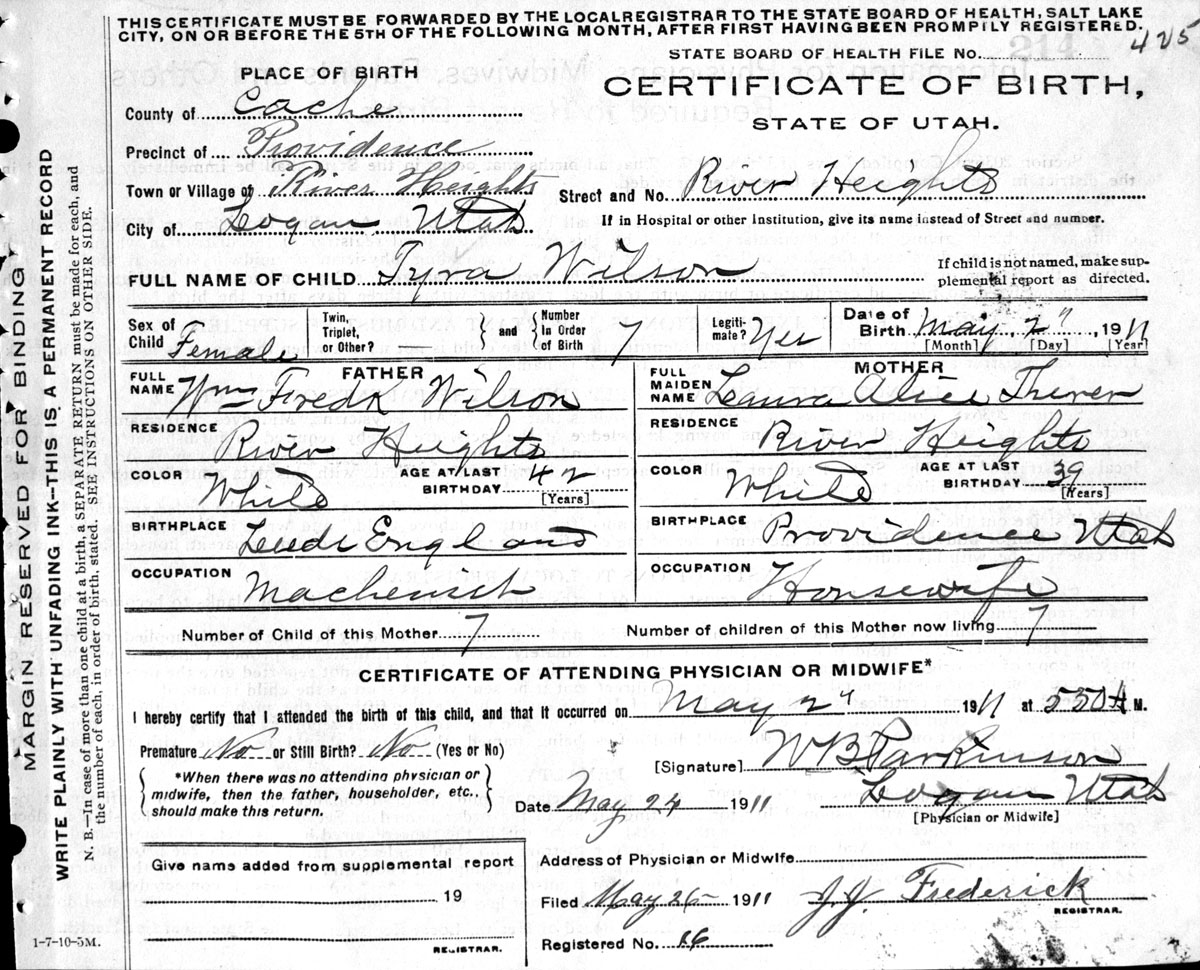 THIS CERTIFICATE MUST BE FORWARDED BY THE LOCAL REGISTRAR TO THE STATE BOARD OF HEALTH, SALT LAKE
CITY, ON OR BEFORE THE 5TH OF THE FOLLOWING MONTH, AFTER FIRST HAVING BEEN PROMPILY REGISTERED.
STATE BOARD OF HEALTH FILE No. 425
PLACE OF BIRTH
CERTIFICATE OF BIRTH,
STATE OF UTAH.
County of Cache
Precinct of Providence
Town or Village of River Heights
Street and No. River Heights
City of Logan Utah
If in Hospital or other Institution, give its name instead of Street and number.
FULL NAME OF CHILD Tyra Wilson
If child is not named, make sup-
plemental report as directed.
Sex of Child Female
Twin, Triplet, or Other?
and Number In Order of Birth 7
Legiti-mate? Yes
Date of Birth May 2" 1911
[Month] [Day] [Year]
FATHER
FULL NAME Wm Fredk Wilson
RESIDENCE River Heights
COLOR White
AGE AT LAST BIRTHDAY 42
[Years]
BIRTHPLACE Leeds England
OCCUPATION Machenist
MOTHER
FULL MAIDEN NAME Laura Alice
RESIDENCE River Heights
COLOR White
AGE AT LAST BIRTHDAY 39
[Years]
BIRTHPLACE Providence Utah
OCCUPATION Housewife
Number of Child of this Mother 7
Number of children of this Mother now living 7
CERTIFICATE OF ATTENDING PHYSICIAN OR MIDWIFE*
I hereby certify that I attended the birth of this child, and that it occurred on May 2" 1911 at 530 A M.
Premature No or Still Birth? No (Yes or No)
*When there was no attending physician or
midwife, then the father, householder, etc.,
should make this return.
[Signature] W B Parkinson
Date May 24 1911
Logan Utah
[Physician or Midwife]
Give name added from supplemental report
19
REGISTRAR.
Address of Physician or Midwife
Filed May 26 1911
J.J. Frederick
REGISTRAR.
Registered No. 16
1-7-10-5M.
MARGIN RESERVED FOR BINDING
WRITE PLAINLY WITH UNFADING INK—THIS IS A PERMANENT RECORD
N. B.—In case of more than one child at a birth, a SEPARATE RETURN must be made for each, and
the number of each, in order of birth, stated. SEE INSTRUCTIONS ON OTHER SIDE.